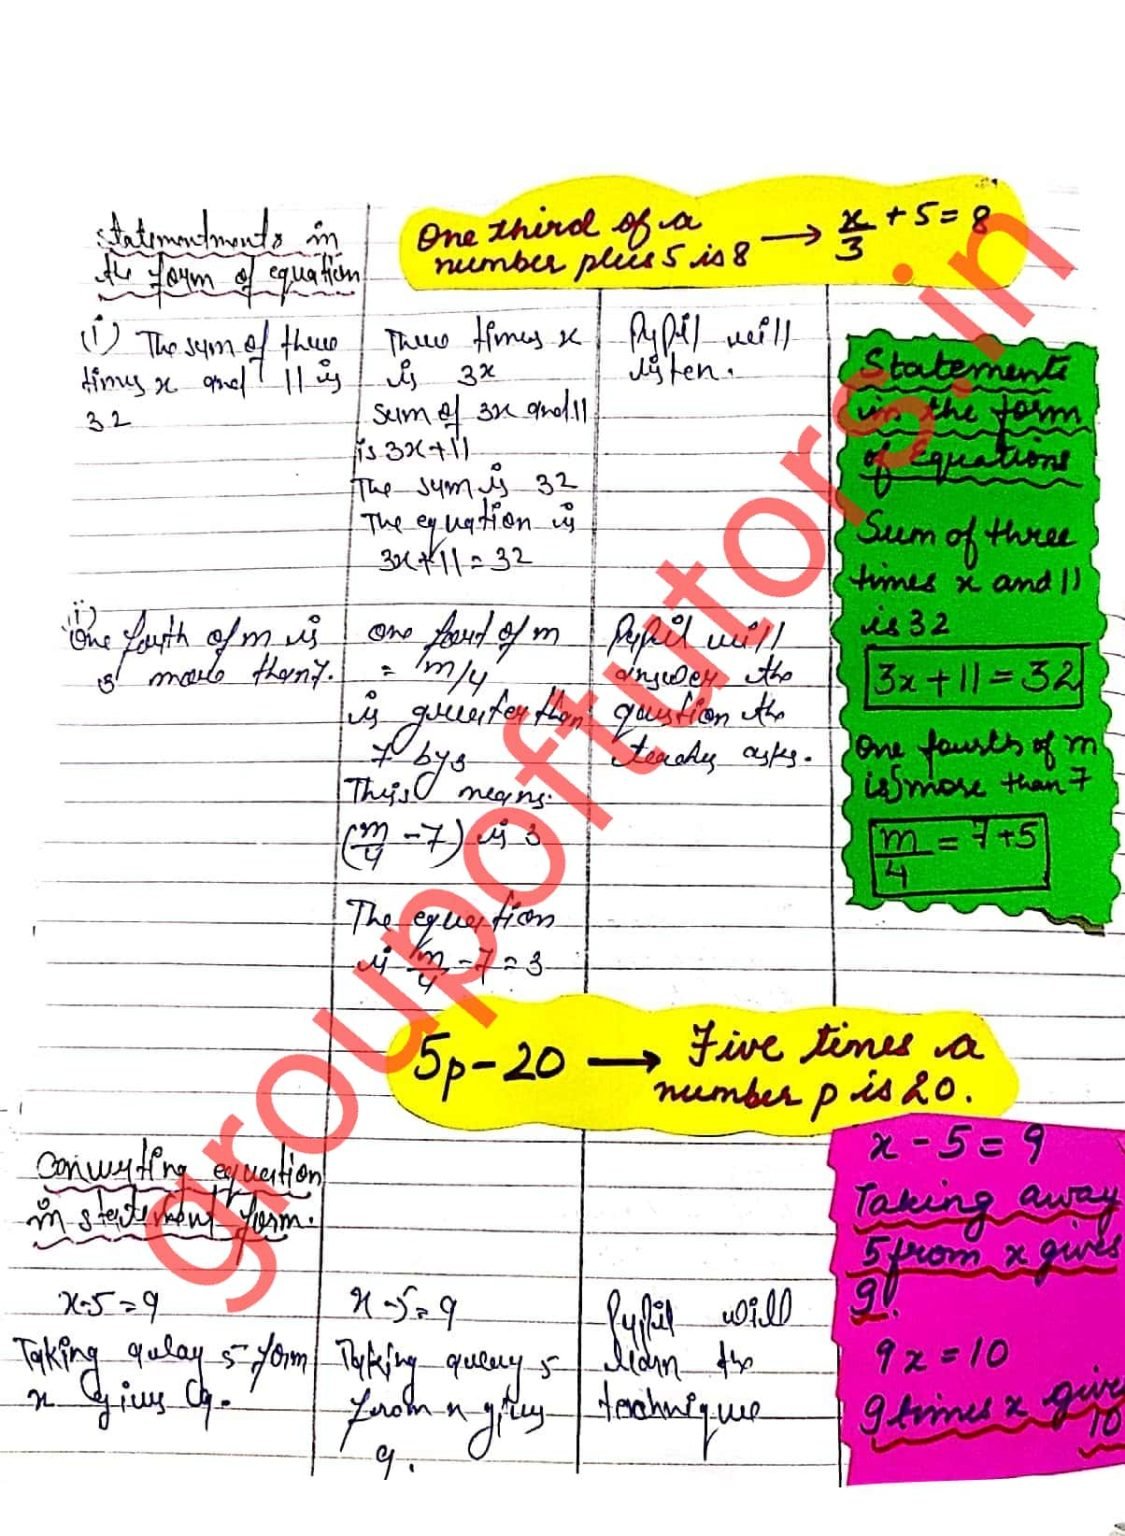 statementments in
the form of equation
One third of a
number plus 5 is 8 → x/3 + 5 = 8
(i) The sum of three
times x and 11 is
32
Three times x
is 3x
sum of 3x and 11
is 3x+11
The sum is 32
The equation is
3x+11=32
Pupil will
listen.
Statements
in the form
of equations
Sum of three
times x and 11
is 32
3x+11=32
One fourth of m
is 5 more than 7
m/4 = 7+5
ii)
One fouth of m is
3 more than 7.
One fourt of m
= m/4
is greeter than
7 by 3
This means.
(m/4 - 7) is 3
The equetion
is m/4 - 7 = 3
Pupil will
answer the
question the
teachy asks.
5p-20 → Five times a
number p is 20.
Converting equation
in statement form.
x-5=9
Taking away 5 form
x gives 9.
x-5=9
Taking away 5
from x gives
9.
Pupil will
learn the
technique
x-5=9
Taking away
5 from x gives
9.
9x=10
9 times x give
10
groupoftutors.in